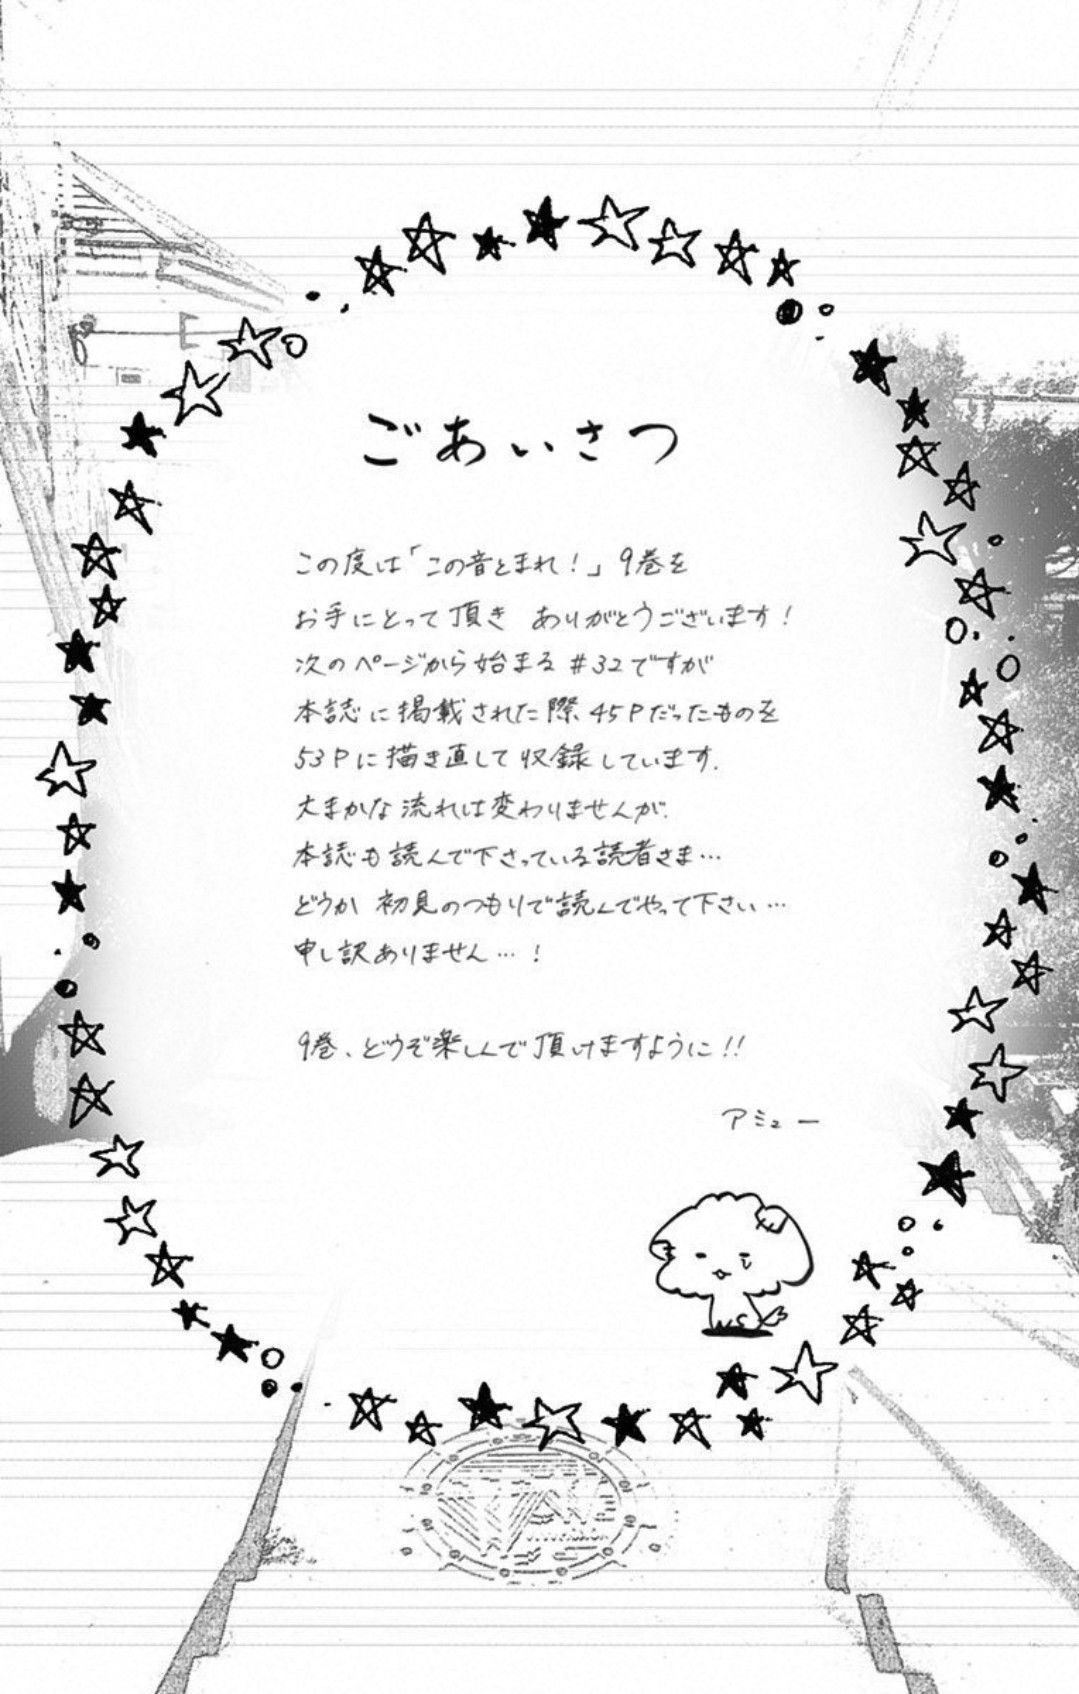 ごあいさつ
この度は「この音とまれ！」9巻を
お手にとって頂き ありがとうございます！
次のページから始まる #32ですが
本誌に掲載された際、45Pだったものを
53Pに描き直して収録しています.
大まかな流れは変わりませんが、
本誌も読んで下さっている読者さま…
どうか 初見のつもりで読んでやって下さい…
申し訳ありません…！
9巻、どうぞ楽しんで頂けますように!!
アミュー